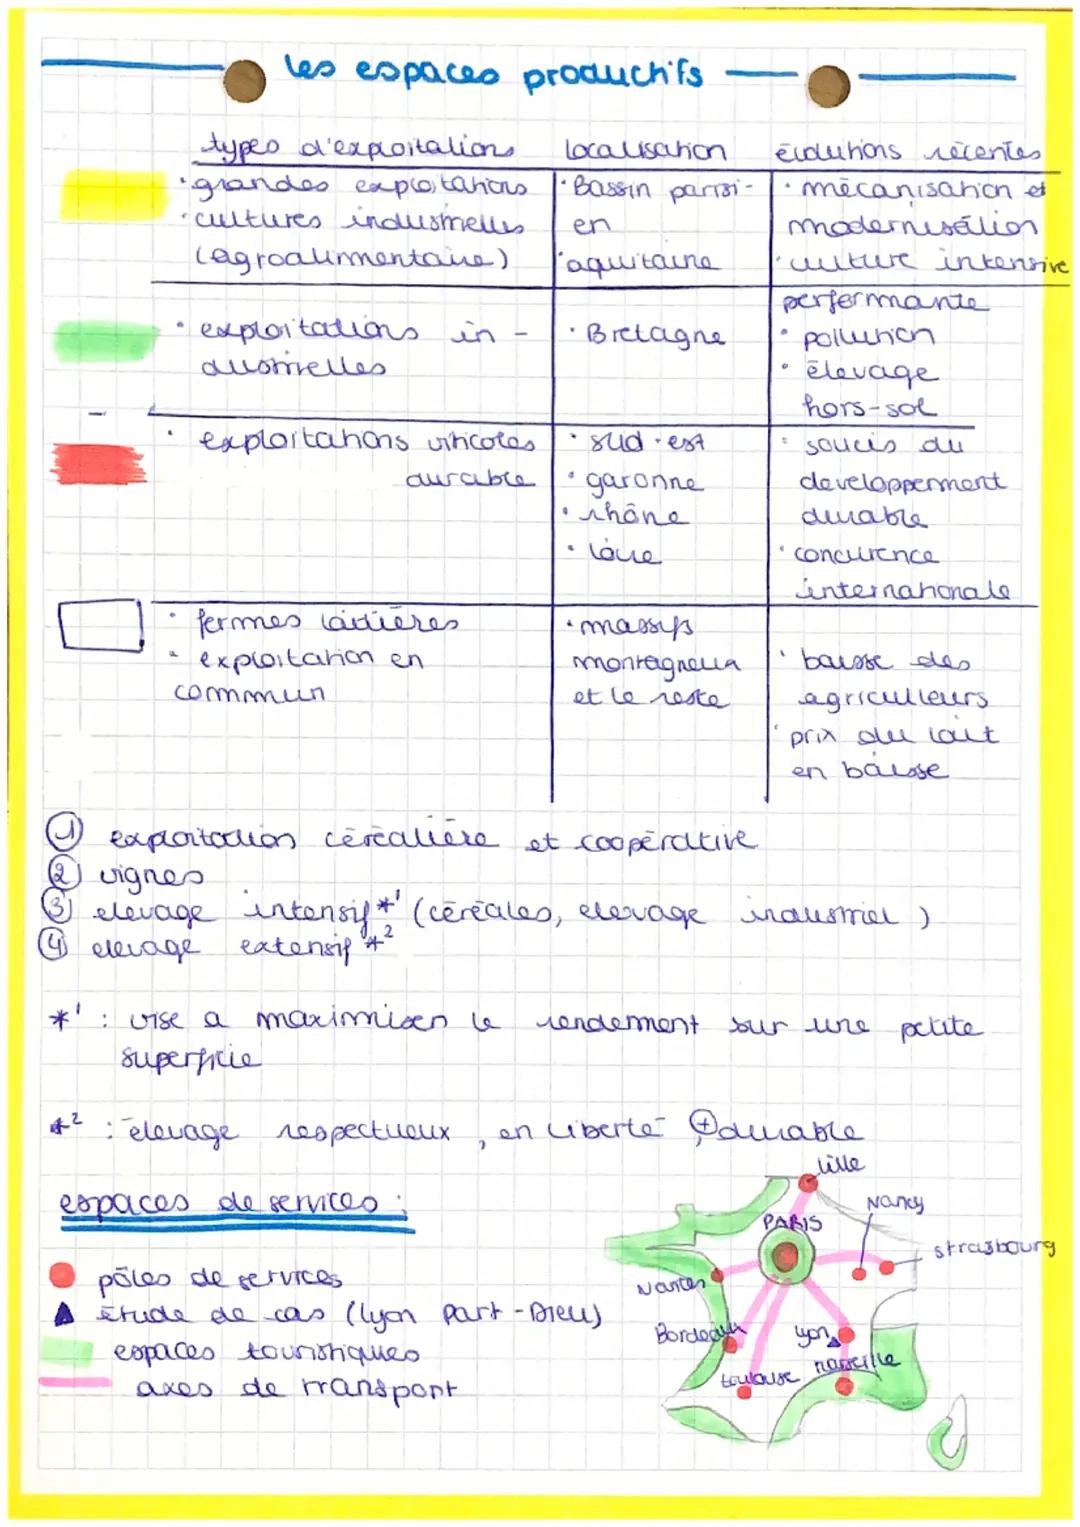 les espaces productifs
types d'exploitations localisation évolutions récentes
· grandes exploitations · Bassin parisi- · mécanisation et
· cultures industrielles en modernisation
(agroalimentaire) · aquitaine · culture intensive
performante
· exploitations in- · Bretagne · pollution
dustrielles · élevage
hors-sol
· exploitations viticoles · sud-est · soucis du
durable · garonne developpement
· rhône durable
· loire · concurence
internationale
· fermes laitières · massifs
· exploitation en montagneux · baisse des
commun et le reste agriculteurs
· prix du lait
en baisse
① exploitation céréalière et coopérative
② vignes
③ elevage intensif *1 (céréales, elevage industriel)
④ elevage extensif *2
*1 : vise a maximiser le rendement sur une petite
superficie
*2 : élevage respectueux, en liberté ⊕ durable
espaces de services :
Lille
Nancy
PARIS
strasbourg
pôles de services
Nantes
étude de cas (lyon Part-Dieu)
Bordeaux lyon
espaces touristiques
toulouse marseille
axes de transport